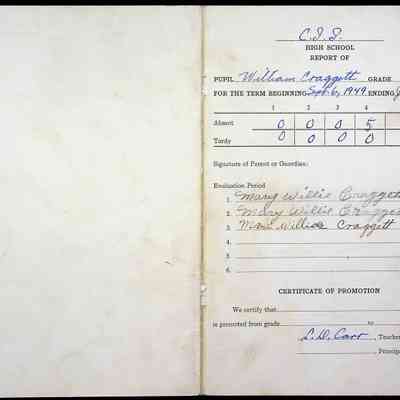 C.I.S.
HIGH SCHOOL
REPORT OF
PUPIL William Craggett GRADE
FOR THE TERM BEGINNING Sept. 6, 1949 ENDING
1 2 3 4
Absent 0 0 0 5
Tardy 0 0 0 0
Signature of Parent or Guardian:
Evaluation Period
1. Mary Willie Craggett
2. Mary Willie Cragge
3. Willie Craggett
4.
5.
6.
CERTIFICATE OF PROMOTION
We certify that
is promoted from grade to
L. D. Carr, Teacher
, Princip